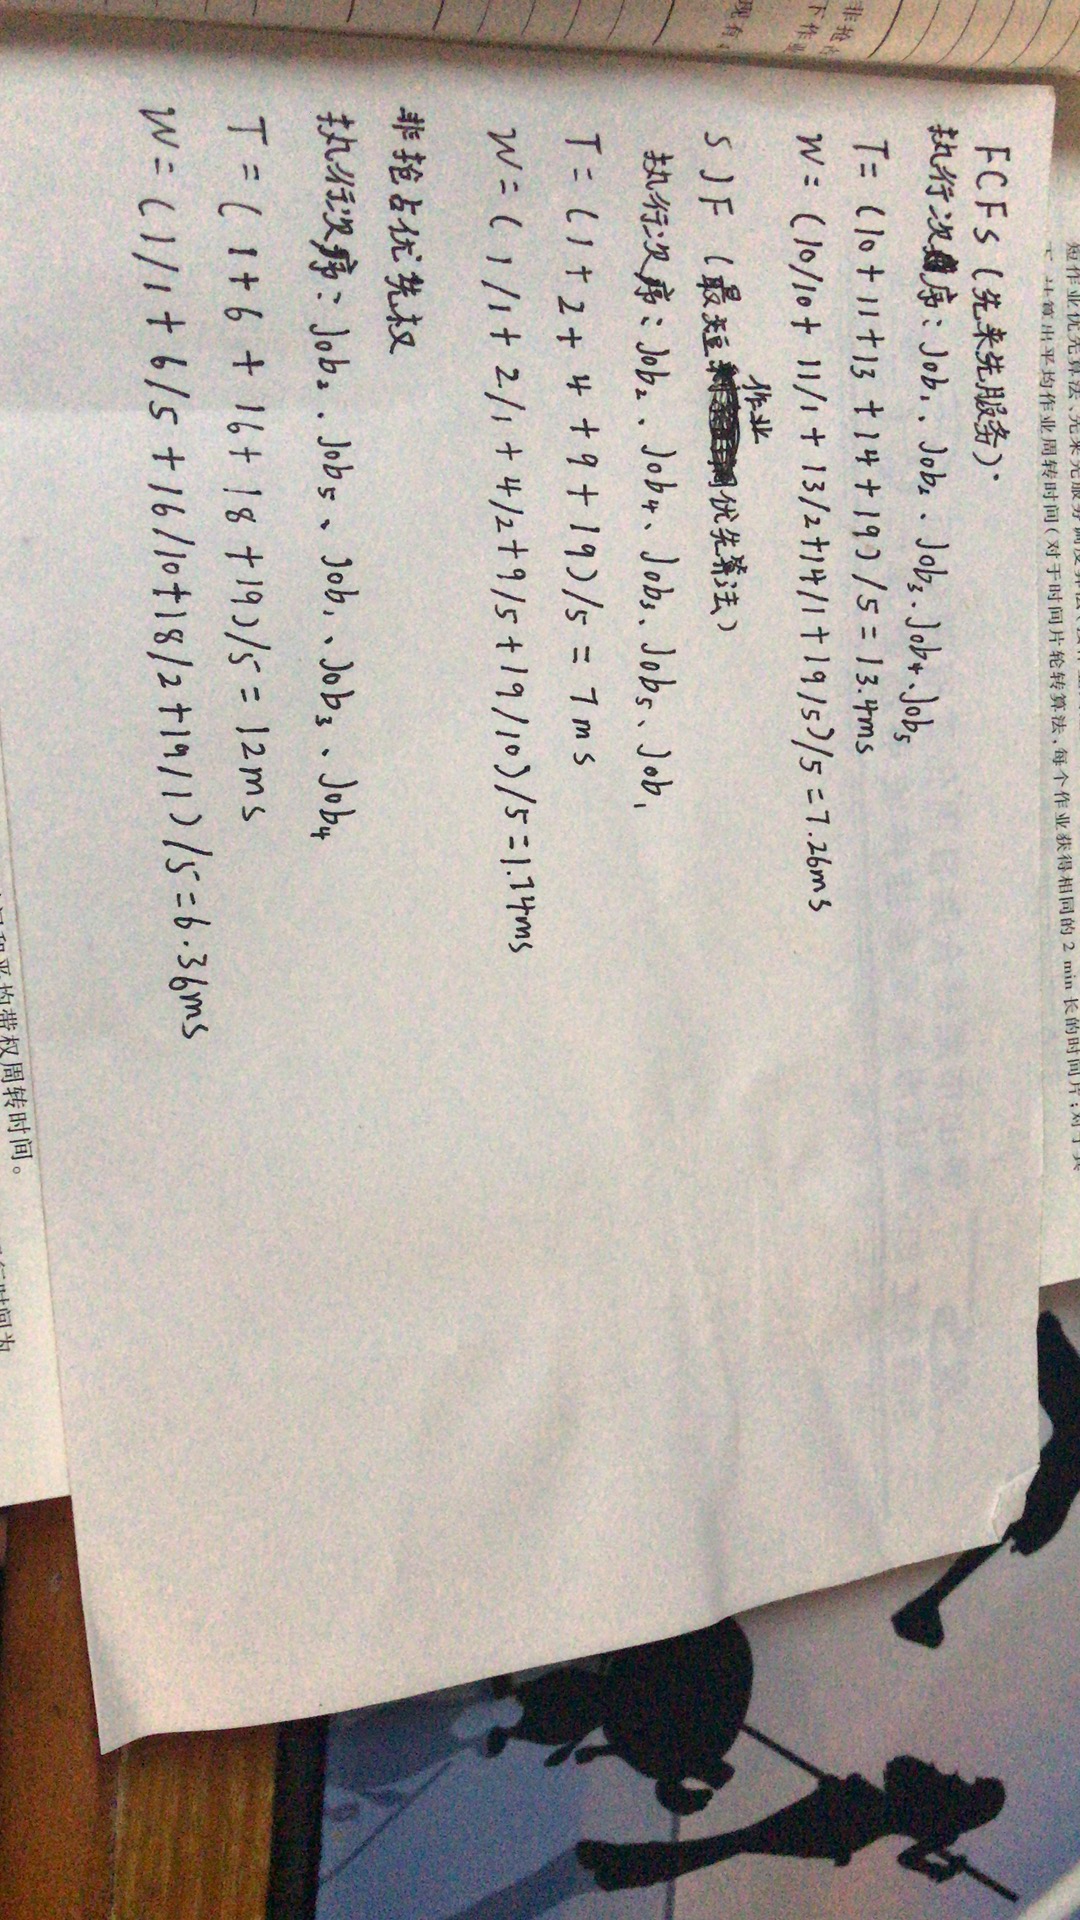 非抢占
下作业
现有
短作业优先算法、先来先服务调度算法
算出平均作业周转时间(对于时间片轮转算法、每个作业获得相同的 2 min 长的时间片;对于
FCFS(先来先服务).
执行次序:Job₁、Job₂、Job₃、Job₄、Job₅
T=(10+11+13+14+19)/5=13.4ms
W=(10/10+11/1+13/2+14/1+19/5)/5=7.26ms
SJF(最短作业优先算法)
执行次序:Job₂、Job₄、Job₃、Job₅、Job₁
T=(1+2+4+9+19)/5=7ms
W=(1/1+2/1+4/2+9/5+19/10)/5=1.74ms
非抢占优先权
执行次序:Job₂、Job₅、Job₁、Job₃、Job₄
T=(1+6+16+18+19)/5=12ms
W=(1/1+6/5+16/10+18/2+19/1)/5=6.36ms
平均带权周转时间。
行时间为